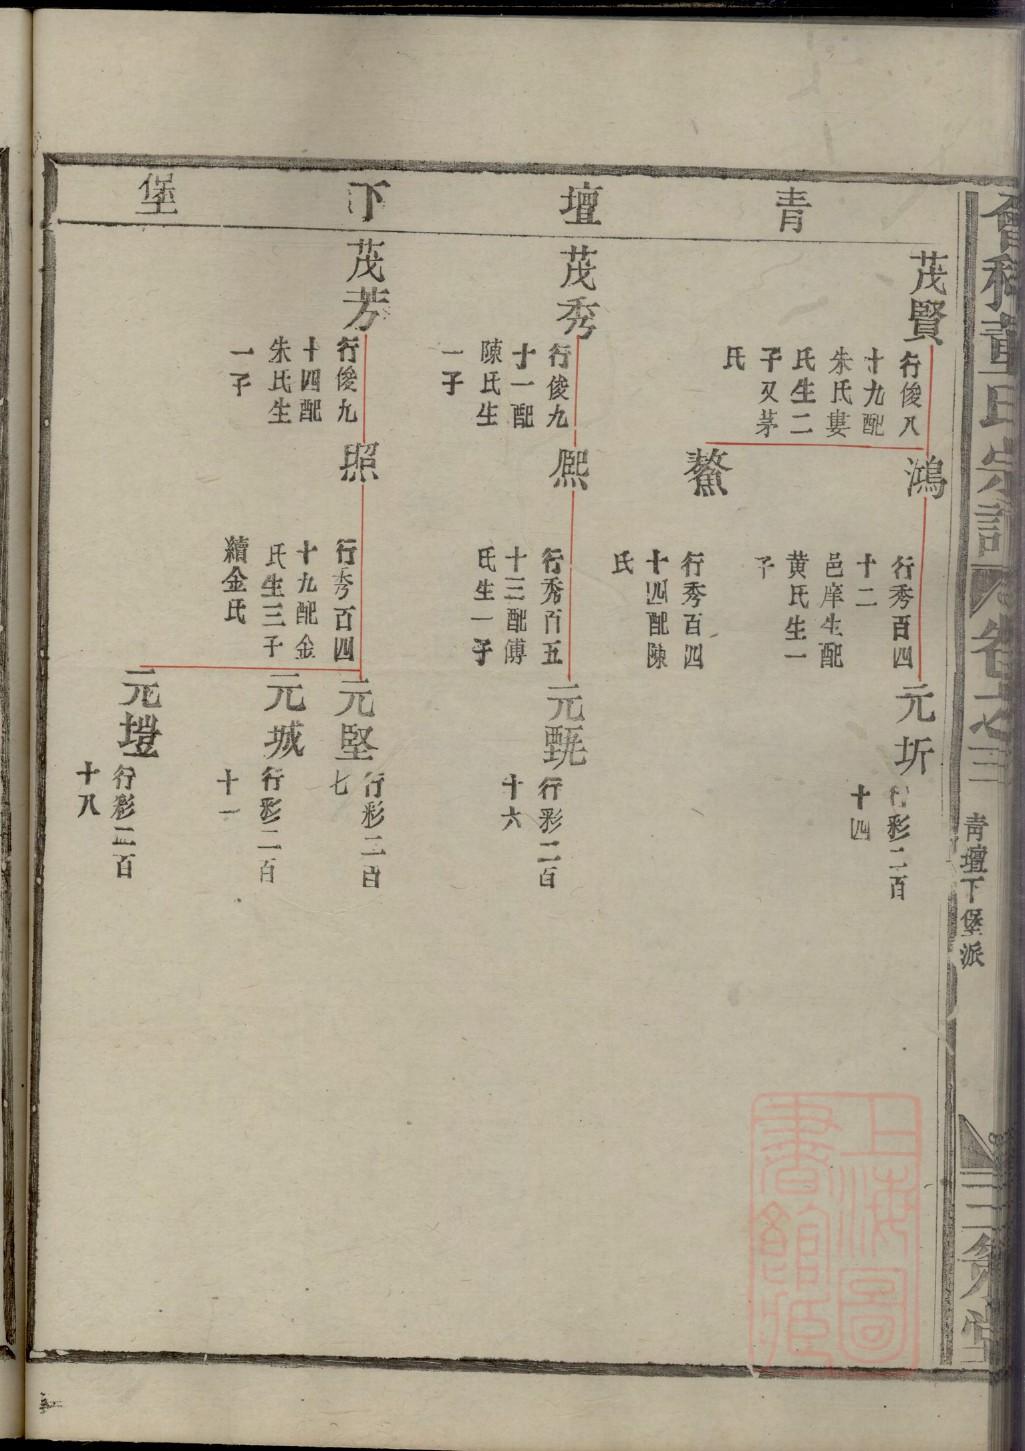 會稽董氏宗譜
卷之三
青壇下堡派
三策堂
青壇下堡
茂賢
行俊八
十九配
朱氏婁
氏生二
子又茅
氏
鴻
行秀百四
十二
邑庠生配
黄氏生一
子
元圻
行彩二百
十四
鰲
行秀百四
十四配陳
氏
茂秀
行俊九
十一配
陳氏生
一子
熈
行秀百五
十三配傅
氏生一子
元甄
行彩二百
十六
茂芳
行俊九
十四配
朱氏生
一子
照
行秀百四
十九配金
氏生三子
續金氏
元堅
行彩二百
七
元城
行彩二百
十一
元塏
行彩二百
十八
上海圖
書館藏